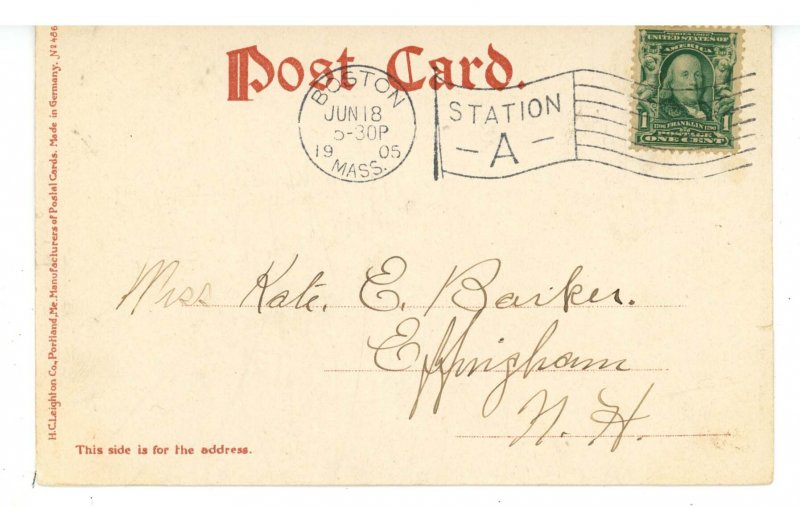 Post Card.
BOSTON
JUN 18
5-30P
19 05
MASS.
STATION
-A-
SERIES 1902
UNITED STATES OF
AMERICA
1 1706 FRANKLIN 1790 1
POSTAGE
ONE CENT
Miss Kate. E. Barker.
Effingham
N. H.
This side is for the address.
H.C. Leighton Co., Portland, Me. Manufacturers of Postal Cards. Made in Germany. Nº 486